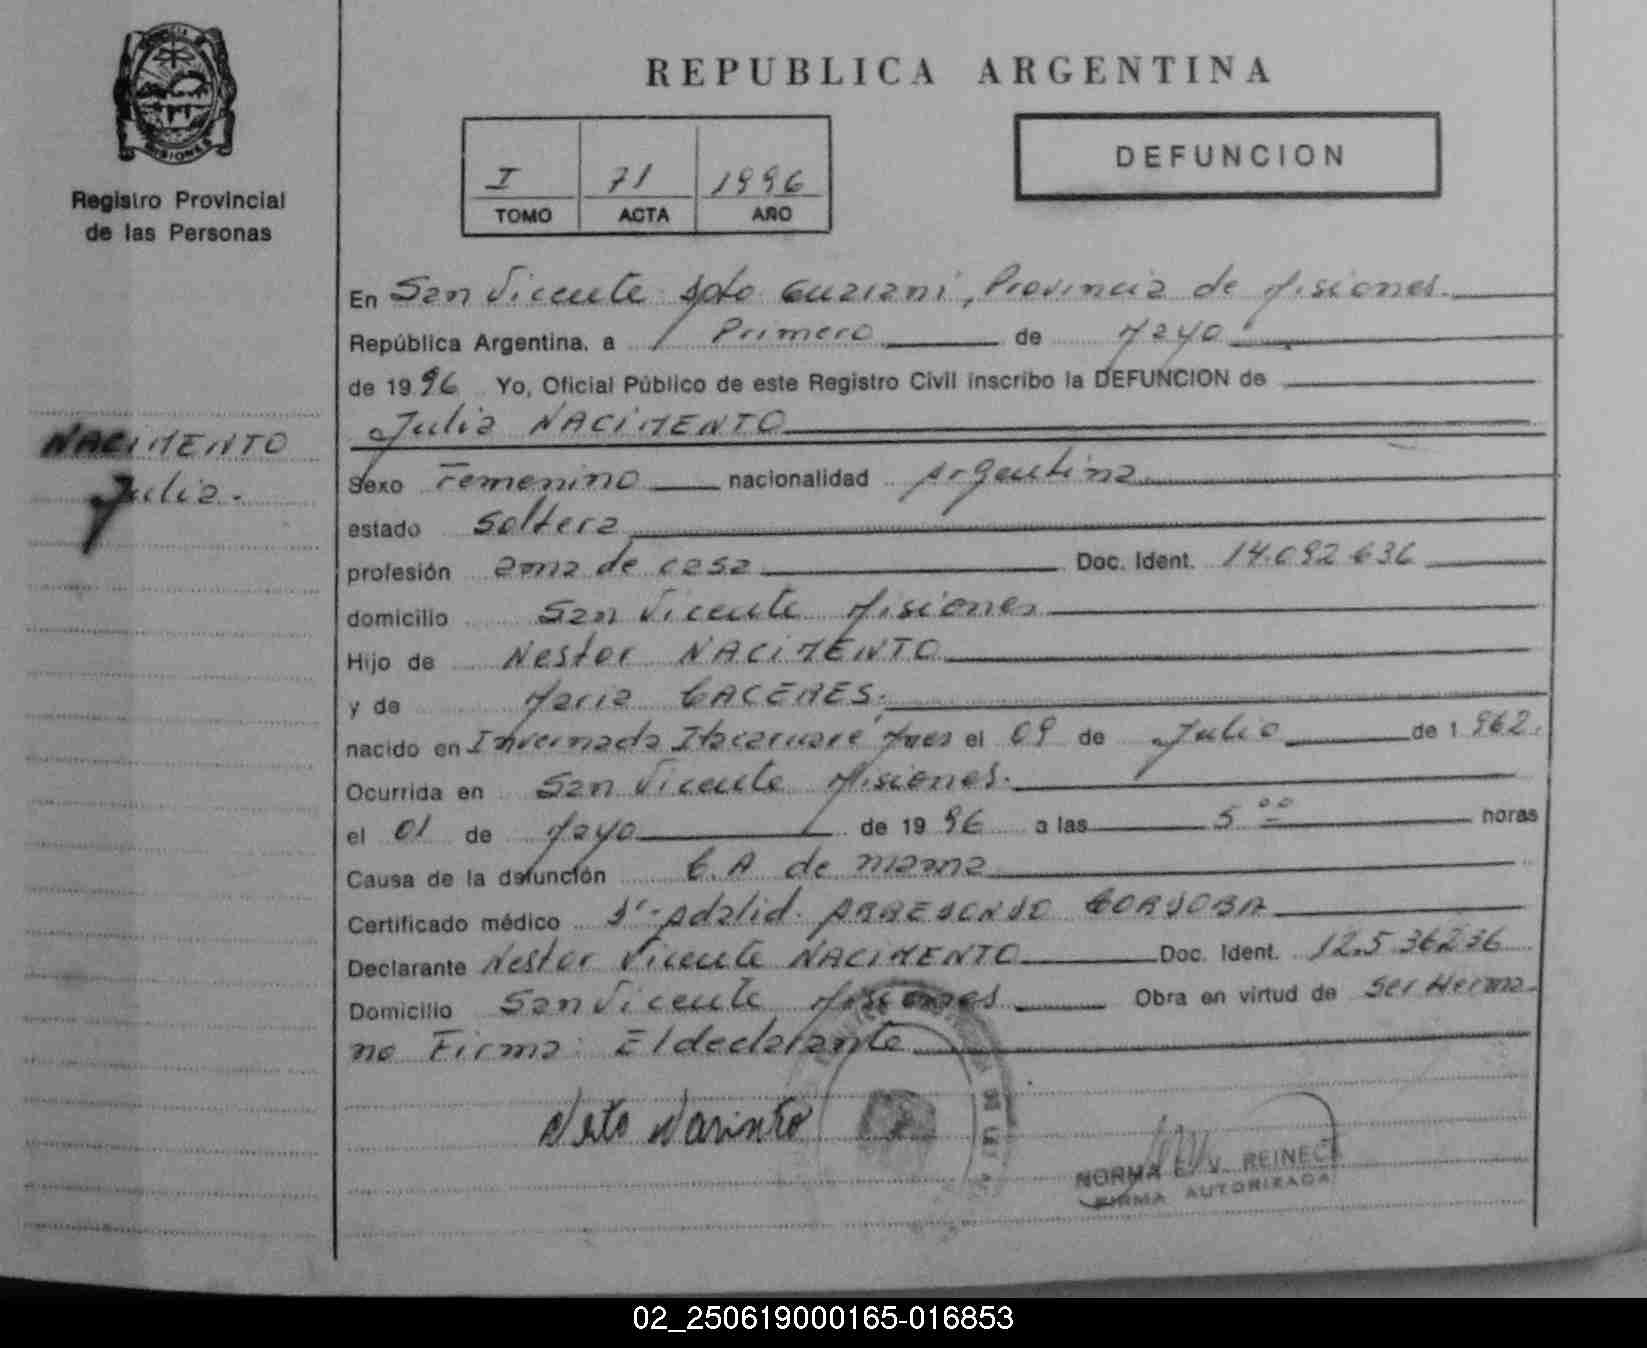 MISIONES
Registro Provincial
de las Personas
REPUBLICA ARGENTINA
I 71 1996
TOMO ACTA AÑO
DEFUNCION
En San Vicente Dpto Guarani, Provincia de Misiones.
República Argentina, a Primero de Mayo
de 1996 Yo, Oficial Público de este Registro Civil inscribo la DEFUNCION de
Julia NACIMENTO
NACIMENTO
Julia.
Sexo Femenino nacionalidad Argentina
estado Soltera
profesión ama de casa Doc. Ident. 14.692.636
domicilio San Vicente Misiones
Hijo de Nestor NACIMENTO
y de Maria CACERES.
nacido en Invernada Itacaruare Mnes el 09 de Julio de 1962.
Ocurrida en San Vicente Misiones.
el 01 de Mayo de 1996 a las 5 00 horas
Causa de la defunción C.A de mama
Certificado médico Dr. Adalid CORDOBA
Declarante Nestor Vicente NACIMENTO Doc. Ident. 12.536236
Domicilio San Vicente Misiones Obra en virtud de Ser Herma-
no Firma: El declarante
NORMA E. V. REINECK
FIRMA AUTORIZADA
02_250619000165-016853